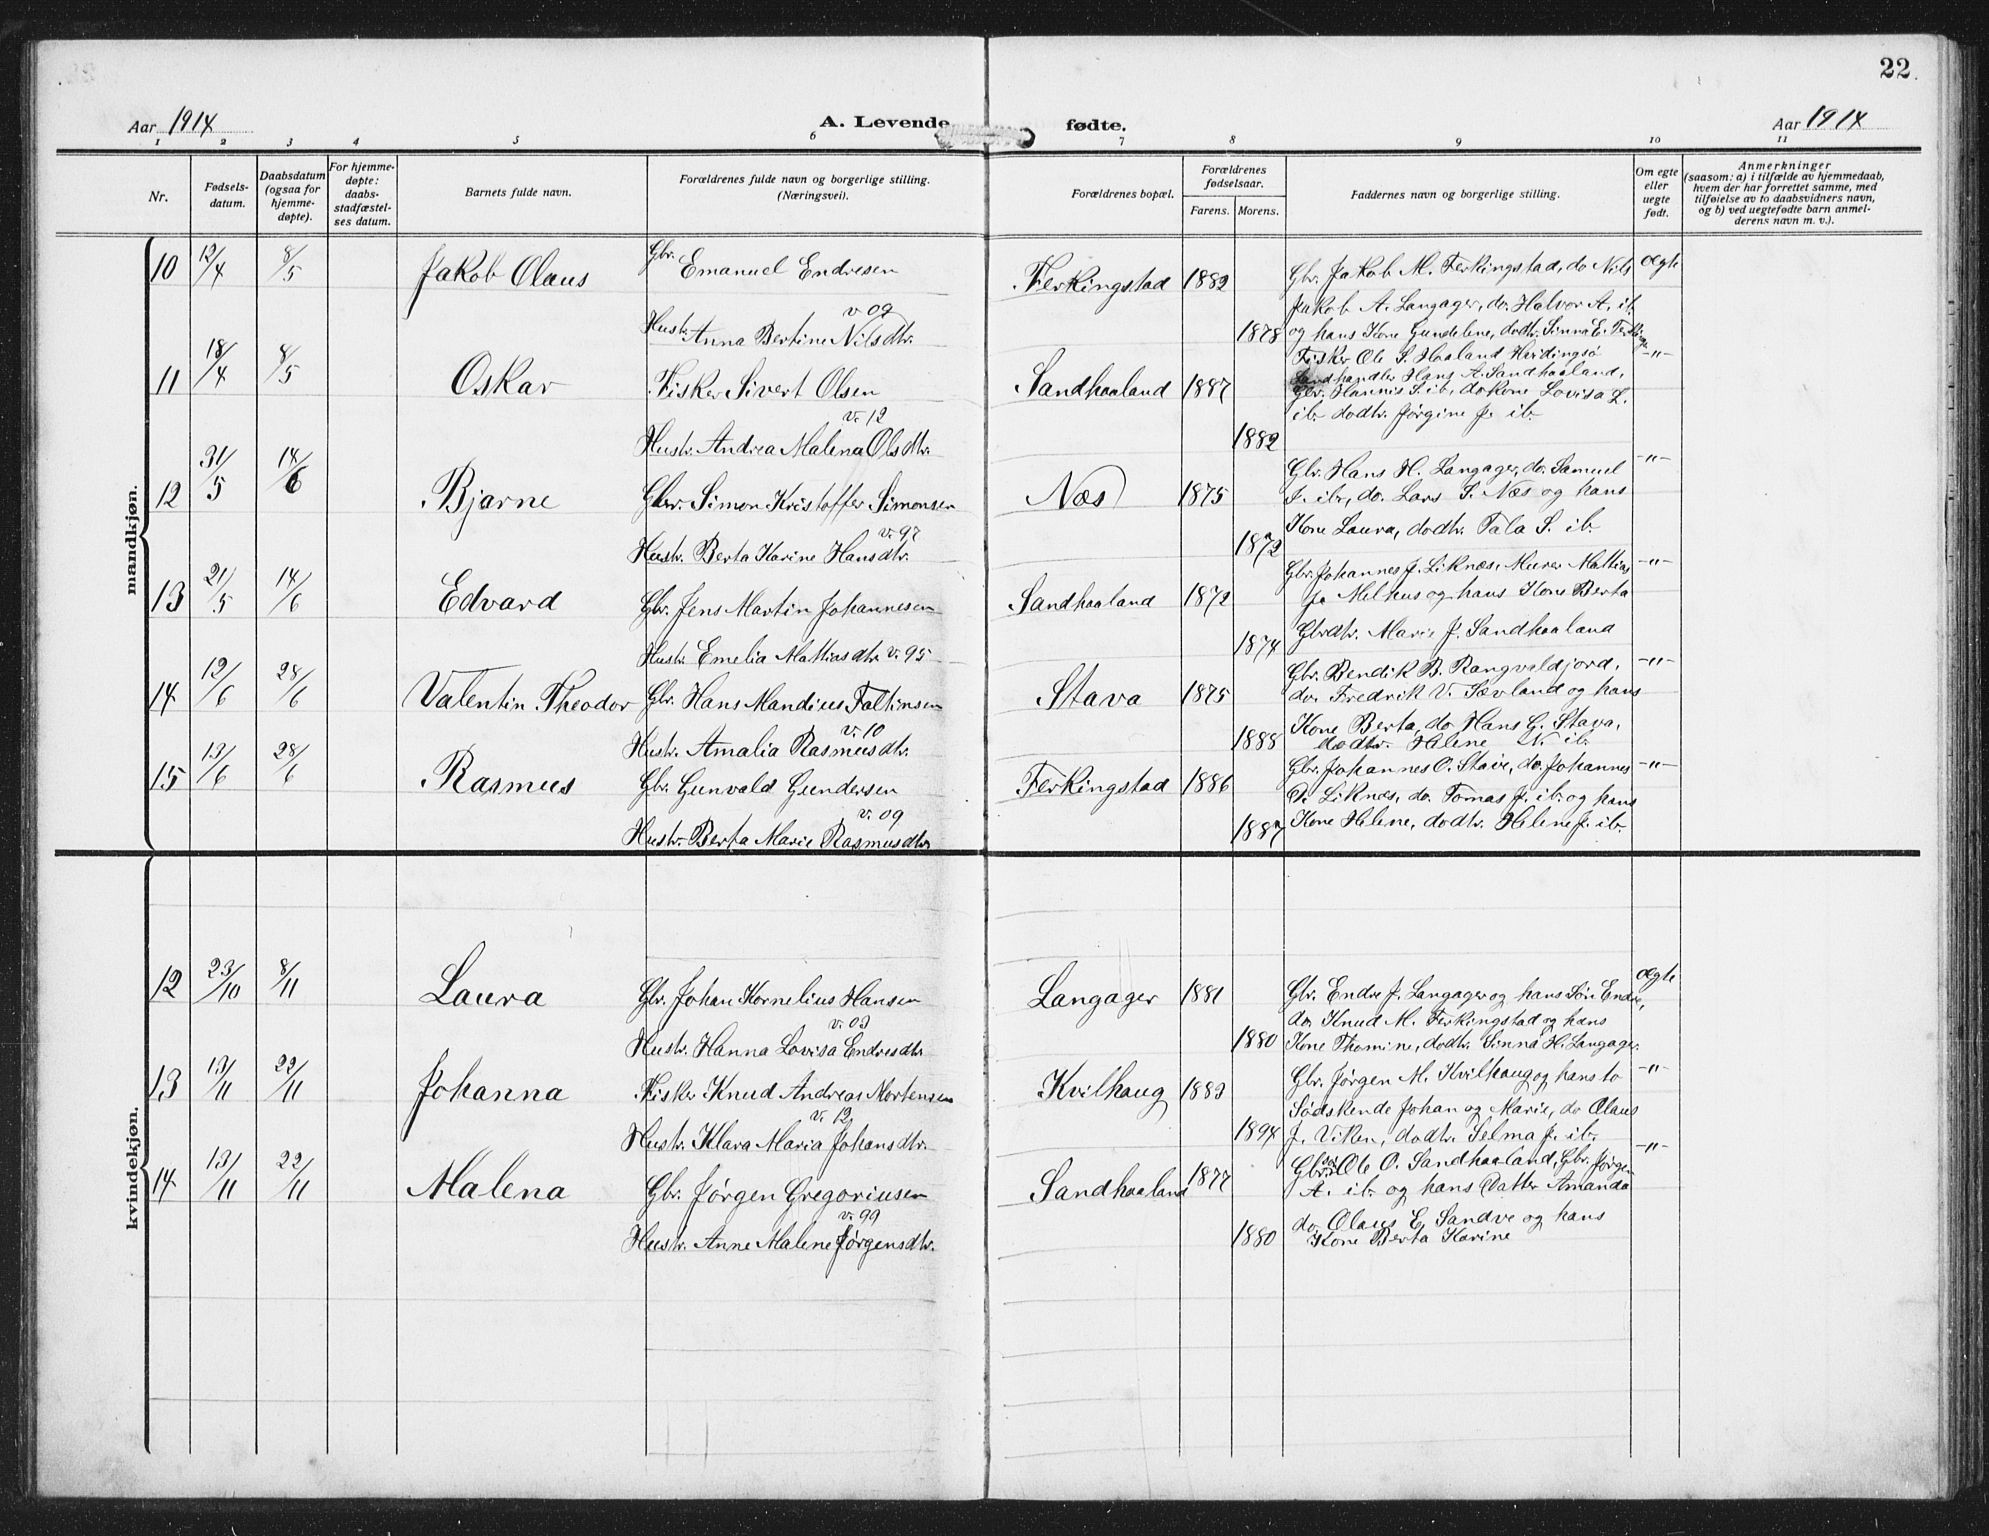 22.
Aar 1914
A. Levende fødte.
Aar 1914
1 2 3 4 5 6 7 8 9 10 11
Nr.
Fødsels-
datum.
Daabsdatum
(ogsaa for
hjemme-
døpte).
For hjemme-
døpte:
daabs-
stadfæstel-
ses datum.
Barnets fulde navn.
Forældrenes fulde navn og borgerlige stilling.
(Næringsvei).
Forældrenes bopæl.
Forældrenes
fødselsaar.
Farens. Morens.
Faddernes navn og borgerlige stilling.
Om egte
eller
uegte
født.
Anmerkninger
(saasom: a) i tilfælde av hjemmedaab,
hvem der har forrettet samme, med
tilføielse av to daabsvidners navn,
og b) ved uegtefødte barn anmel-
derens navn m. v.).
mandkjøn.
10 12/4 8/5 Jakob Olaus Gbr. Emanuel Endresen Ferkingstad 1882 Gbr. Jakob M. Ferkingstad, do Nils ægte
v 09 Jakob A. Langager, do. Halvor A. ib.
Hustr. Anna Bertine Nilsdtr. 1878 og hans Kone Gundelene, dodtr. Sinna E. Ferking
11 18/4 8/5 Oskar Fisker Sivert Olsen Sandhaaland 1887 Fisker Ole S. Haaland Hvidingsö -"-
Landhandler Hans A. Sandhaaland,
Gbr. Hannis S. ib, do Kone Lovisa L.
v. 12 ib. dodtr. Jørgine J. ib.
Hustr. Andrea Malena Olsdtr. 1882
12 31/5 14/6 Bjarne Gbr. Simon Kristoffer Simonsen Næs 1875 Gbr. Hans H. Langager, do. Samuel -"-
S. ib, do. Lars S. Næs og hans
v. 97
Hustr. Berta Karine Hansdtr. 1872 Kone Laura, dodtr. Tala S. ib.
13 21/5 14/6 Edvard Gbr. Jens Martin Johannesen Sandhaaland 1872 Gbr. Johannes J. Liknæs, Murer Mathias -"-
J. Melhus og hans Kone Berta
Hustr. Emelia Mattiasdtr. v. 95 1874 Gbrdtr. Marie J. Sandhaaland
14 12/6 28/6 Valentin Theodor Gbr. Hans Mandius Faltinsen Stava 1875 Gbr. Bendik B. Rangvaldjord, -"-
do. Fredrik V. Sævland og hans
v. 10
Hustr. Amalia Rasmusdtr. 1888 Kone Berta, do Hans G. Stava,
dodtr. Helene N. ib.
15 13/6 28/6 Rasmus Gbr. Gunvald Gundersen Ferkingstad 1886 Gbr. Johannes O. Stave, do. Johannes -"-
O. Liknæs, do. Tomas J. ib. og hans
v. 09
Hustr. Berta Marie Rasmusdtr. 1887 Kone Helene, dodtr. Helene J. ib.
kvindekjøn.
12 23/10 8/11 Laura Gbr. Johan Kornelius Hansen Langager 1881 Gbr. Endre J. Langager og hans Søn Endre, ægte
v. 03 do. Knud M. Ferkingstad og hans
Hustr. Hanna Lovisa Endresdtr. 1880 Kone Thomine, dodtr. Sinna H. Langager.
13 13/11 22/11 Johanna Fisker Knud Andreas Mortensen Kvilhaug 1883 Gbr. Jørgen M. Kvilhaug og hans to -"-
v. 12 Sødskende Johan og Marie, do Olaus
Hustr. Klara Maria Johansdtr. 1894 J. Viken, dodtr. Selma J. ib.
14 13/11 22/11 Malena Gbr. Jørgen Gregoriusen Sandhaaland 1877 Gbrsøn Ole O. Sandhaaland, Gbr. Jørgen -"-
v. 99 A. ib og hans Datter Amanda
Hustr. Anne Malene Jørgensdtr. 1880 do. Olaus E. Sandve og hans
Kone Berta Karine